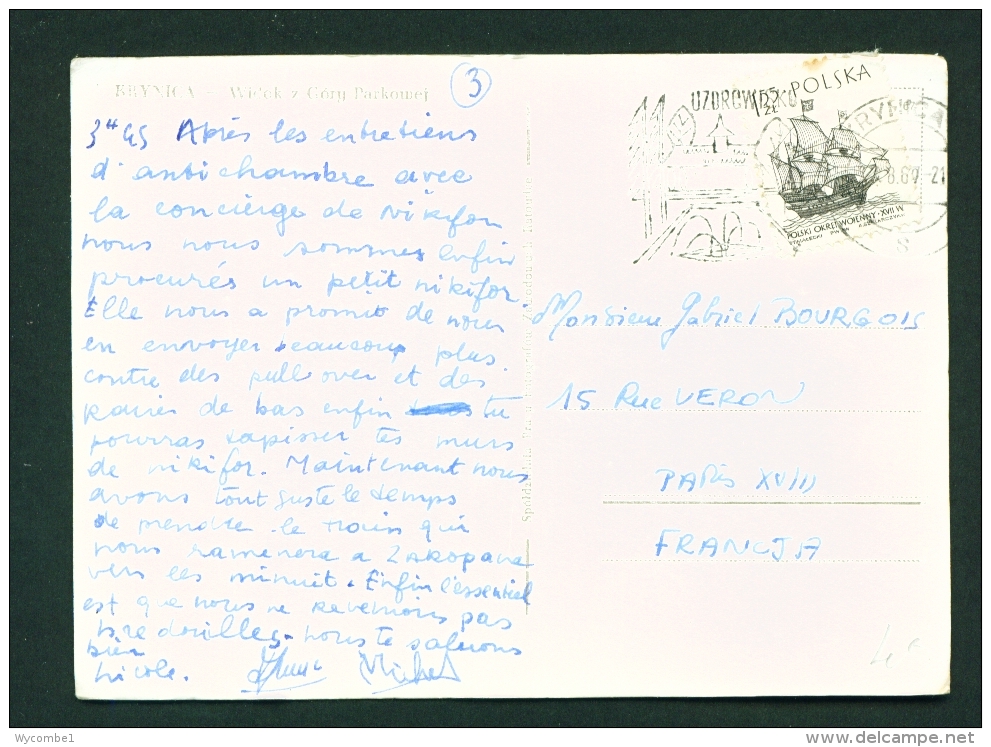 KRYNICA — Widok z Góry Parkowej
3
3H45 Après les entretiens
d'antichambre avec
la concierge de Nikifor
nous nous sommes enfin
procurés un petit nikifor.
Elle nous a promis de nous
en envoyer beaucoup plus.
contre des pull over et des
paires de bas enfin tu
pourras tapisser tes murs
de nikifor. Maintenant nous
avons tout juste le temps
de prendre le train qui
nous ramenera a Zakopane
vers les minuit. Enfin l'essentiel
est que nous ne revenions pas
bredouilles. nous te saluons
bien
Nicole. Michel
UZDROWISKO
1,55 ZŁ POLSKA
POLSKI OKRĘT WOJENNY · XVII W
KRYNICA
Monsieur Gabriel BOURGOIS
15 Rue VERON
PARIS XVIII
FRANCJA
4€
Wycombe1
www.delcampe.net